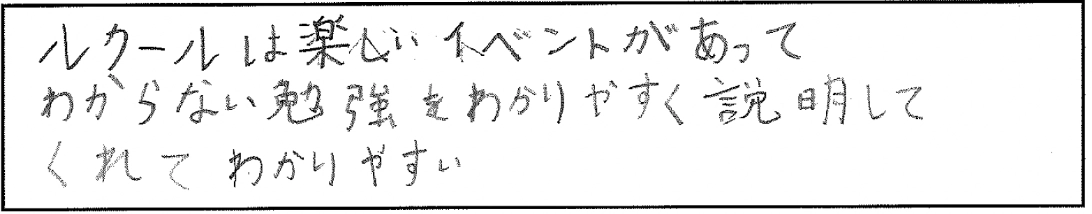 ルクールは楽しいイベントがあって
わからない勉強をわかりやすく説明して
くれてわかりやすい